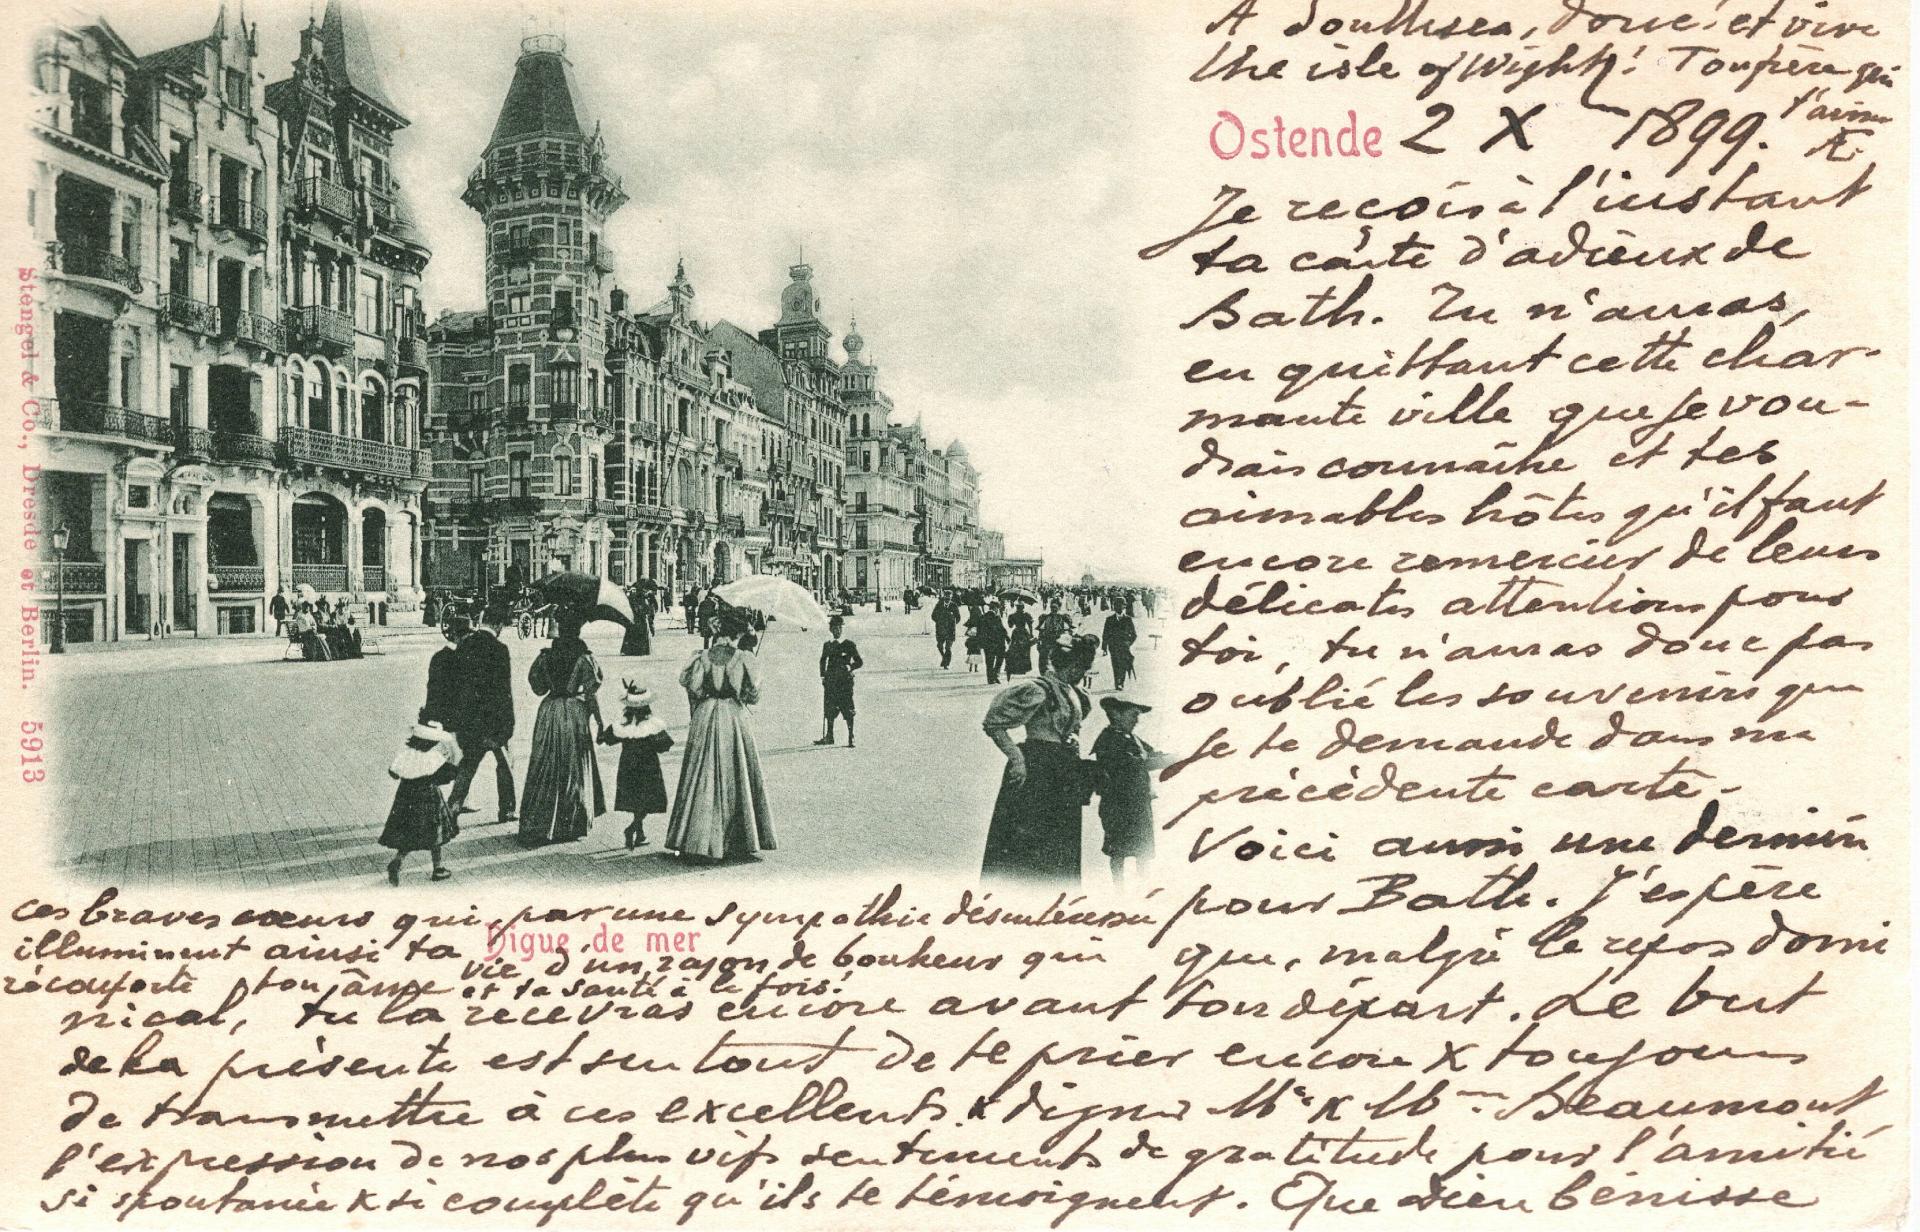 Ostende 2 X 1899.
Je reçois à l'instant
ta carte d'adieux de
Bath. Tu n'auras,
en quittant cette char-
mante ville que je vou-
drais connaître et tes
aimables hôtes qu'il faut
encore remercier de leurs
délicates attentions pour
toi, tu n'auras donc pas
oublié les souvenirs que
je te demande dans ma
précédente carte.
Voici aussi une dernière
pour Bath. J'espère
que, malgré le repos domi
nical, tu la recevras encore avant ton départ. Le but
de la présente est surtout de te prier encore & toujours
de transmettre à ces excellents & dignes Mr & Mme Beaumont
l'expression de nos plus vifs sentiments de gratitude pour l'amitié
si spontanée & si complète qu'ils te témoignent. Que Dieu bénisse
ces braves cœurs qui, par une sympathie désintéressée
illuminent ainsi ta vie d'un rayon de bonheur qui
réconforte ton âme et ta santé à la fois!
A Southsea, donc! et vive
the isle of Wight! Toupère qui
t'aime
Æ.
Digue de mer
Stengel & Co., Dresde et Berlin. 5913